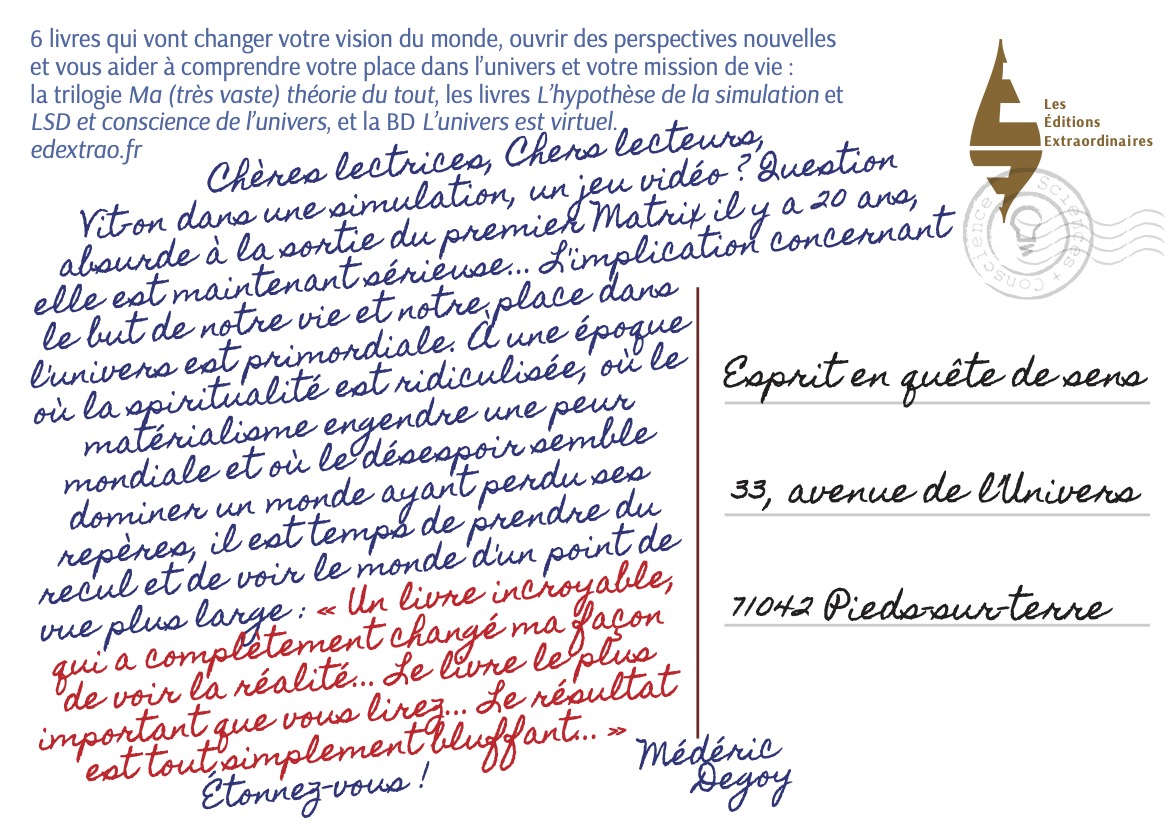 6 livres qui vont changer votre vision du monde, ouvrir des perspectives nouvelles
et vous aider à comprendre votre place dans l’univers et votre mission de vie :
la trilogie Ma (très vaste) théorie du tout, les livres L’hypothèse de la simulation et
LSD et conscience de l’univers, et la BD L’univers est virtuel.
edextrao.fr
Les
Éditions
Extraordinaires
Sciences + Conscience
Chères lectrices, Chers lecteurs,
Vit-on dans une simulation, un jeu vidéo ? Question
absurde à la sortie du premier Matrix il y a 20 ans,
elle est maintenant sérieuse... L'implication concernant
le but de notre vie et notre place dans
l'univers est primordiale. À une époque
où la spiritualité est ridiculisée, où le
matérialisme engendre une peur
mondiale et où le désespoir semble
dominer un monde ayant perdu ses
repères, il est temps de prendre du
recul et de voir le monde d'un point de
vue plus large : « Un livre incroyable,
qui a complètement changé ma façon
de voir la réalité... Le livre le plus
important que vous lirez... Le résultat
est tout simplement bluffant... »
Étonnez-vous !
Médéric
Degoy
Esprit en quête de sens
33, avenue de l'Univers
71042 Pieds-sur-terre